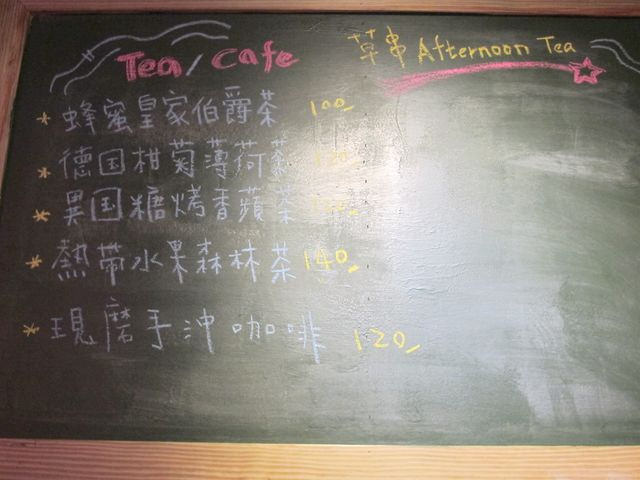 Tea / Cafe
草串 Afternoon Tea
* 蜂蜜皇家伯爵茶 100
* 德国柑菊薄荷茶
* 異国糖烤香蘋茶
* 熱帶水果森林茶 140
* 現磨手沖咖啡 120